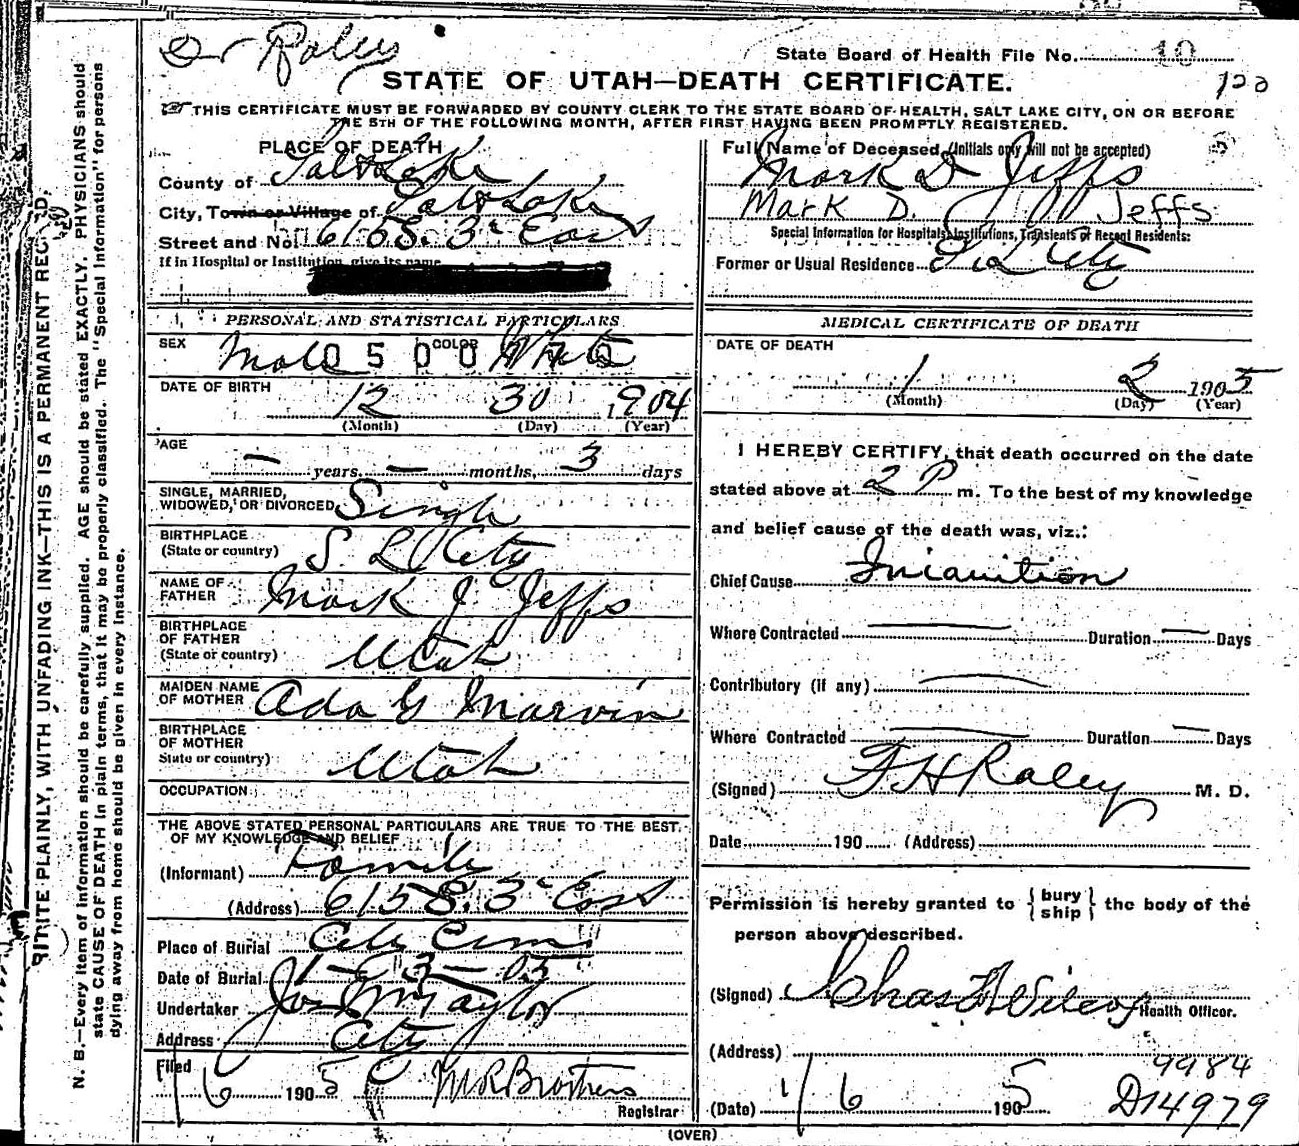 Dr Raley
State Board of Health File No. 10
STATE OF UTAH—DEATH CERTIFICATE.
120
THIS CERTIFICATE MUST BE FORWARDED BY COUNTY CLERK TO THE STATE BOARD OF HEALTH, SALT LAKE CITY, ON OR BEFORE
THE 5TH OF THE FOLLOWING MONTH, AFTER FIRST HAVING BEEN PROMPTLY REGISTERED.
WRITE PLAINLY, WITH UNFADING INK—THIS IS A PERMANENT RECORD.
N. B.—Every item of information should be carefully supplied. AGE should be stated EXACTLY. PHYSICIANS should
state CAUSE OF DEATH in plain terms, that it may be properly classified. The "Special Information" for persons
dying away from home should be given in every instance.
PLACE OF DEATH
County of Salt Lake
City, Town or Village of Salt Lake
Street and No. 615 S. 3d East
If in Hospital or Institution, give its name
PERSONAL AND STATISTICAL PARTICULARS
SEX Male COLOR White
0500770
DATE OF BIRTH
12 30 1904
(Month) (Day) (Year)
AGE
— years, — months, 3 days
SINGLE, MARRIED,
WIDOWED, OR DIVORCED Single
BIRTHPLACE
(State or country) S L City
NAME OF
FATHER Mark J Jeffs
BIRTHPLACE
OF FATHER
(State or country) Utah
MAIDEN NAME
OF MOTHER Ada G Marvin
BIRTHPLACE
OF MOTHER
State or country) Utah
OCCUPATION
THE ABOVE STATED PERSONAL PARTICULARS ARE TRUE TO THE BEST
OF MY KNOWLEDGE AND BELIEF
(Informant) Family
(Address) 615 S. 3d East
Place of Burial City Cem
Date of Burial 1-3-05
Undertaker Jos E Taylor
Address City
Filed
1/6 1905 M R Brothers
Registrar
Full Name of Deceased (Initials only will not be accepted)
Mark D Jeffs
Mark D. Jeffs
Special Information for Hospitals, Institutions, Transients or Recent Residents:
Former or Usual Residence S L City
MEDICAL CERTIFICATE OF DEATH
DATE OF DEATH
1 2 1905
(Month) (Day) (Year)
I HEREBY CERTIFY, that death occurred on the date
stated above at 2 P m. To the best of my knowledge
and belief cause of the death was, viz.:
Chief Cause Inianition
Where Contracted — Duration — Days
Contributory (if any) —
Where Contracted — Duration — Days
(Signed) F H Raley M. D.
Date 190 (Address)
Permission is hereby granted to { bury
ship } the body of the
person above described.
(Signed) Chas Wilcox Health Officer.
(Address)
9984
(Date) 1/6 1905 D14979
(OVER)